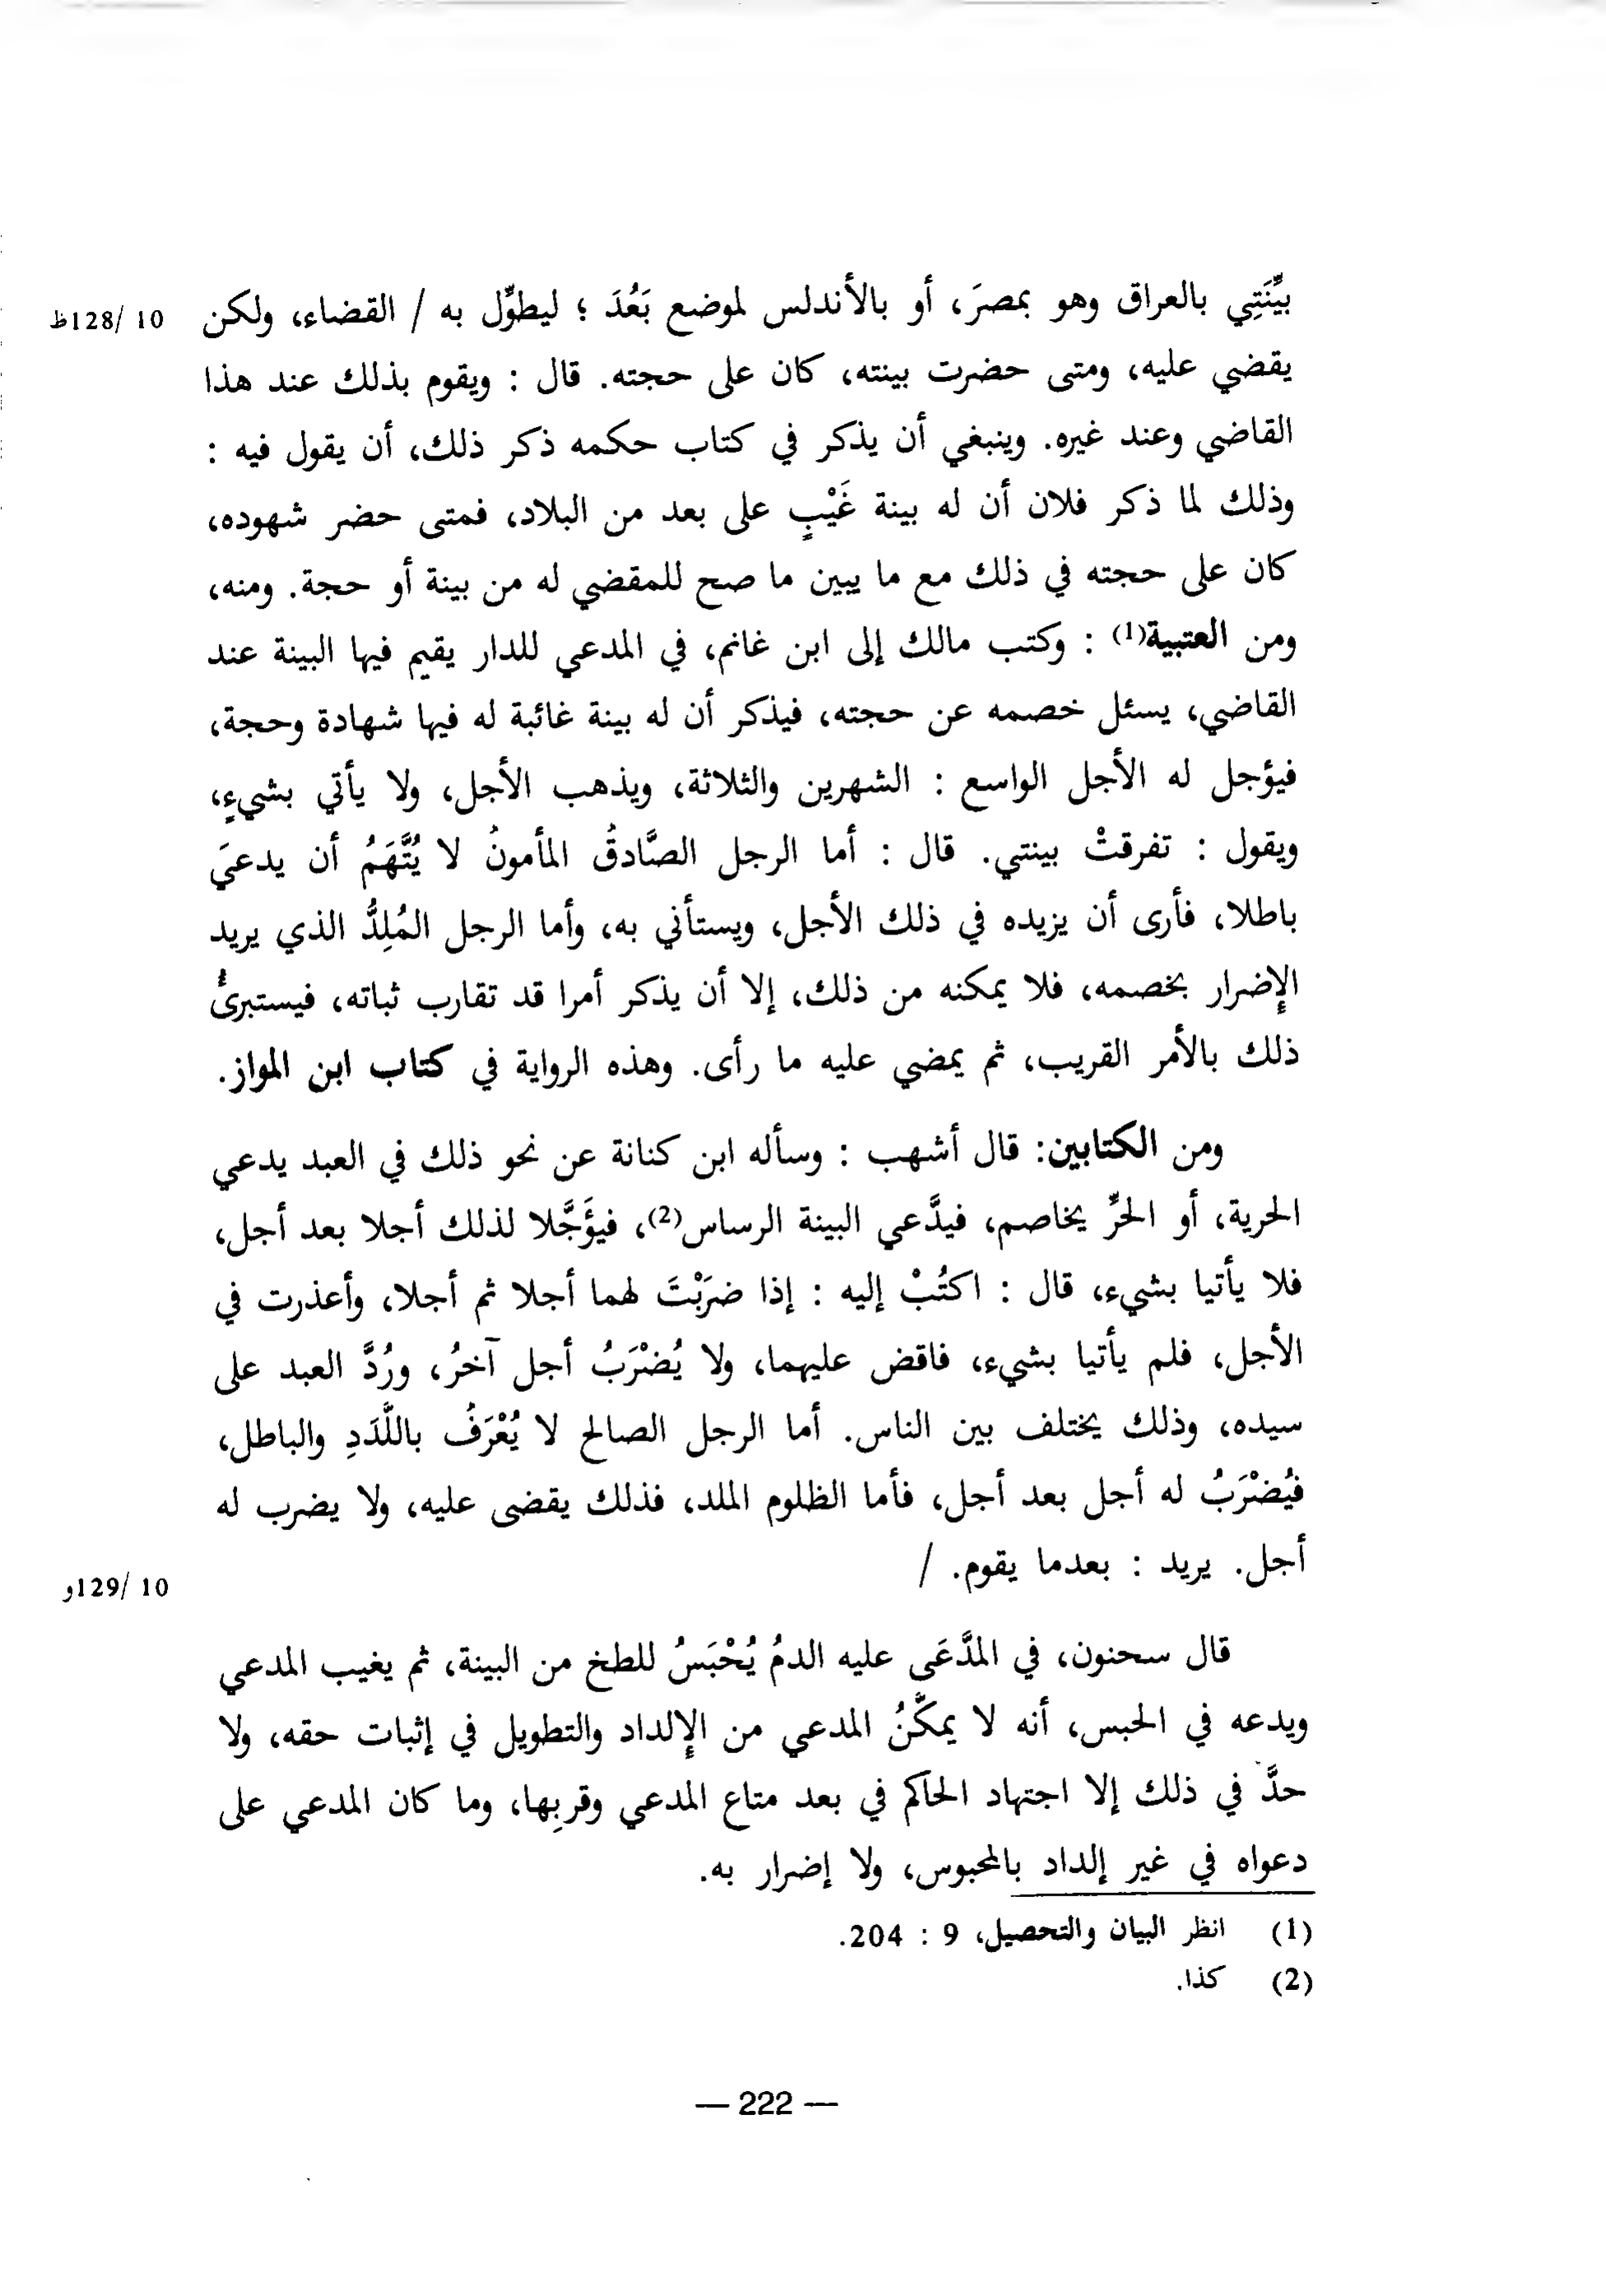 بيِّنَتِي بالعراق وهو بمصرَ، أو بالأندلس لموضع بَعُدَ ؛ ليطوِّل به / القضاء، ولكن
10 /128ظ
يقضي عليه، ومتى حضرت بينته، كان على حجته. قال : ويقوم بذلك عند هذا
القاضي وعند غيره. وينبغي أن يذكر في كتاب حكمه ذكر ذلك، أن يقول فيه :
وذلك لما ذكر فلان أن له بينة غَيْبٍ على بعد من البلاد، فمتى حضر شهوده،
كان على حجته في ذلك مع ما يبين ما صح للمقضي له من بينة أو حجة. ومنه،
ومن العتبية(1) : وكتب مالك إلى ابن غانم، في المدعي للدار يقيم فيها البينة عند
القاضي، يسئل خصمه عن حجته، فيذكر أن له بينة غائبة له فيها شهادة وحجة،
فيؤجل له الأجل الواسع : الشهرين والثلاثة، ويذهب الأجل، ولا يأتي بشيءٍ،
ويقول : تفرقتْ بينتي. قال : أما الرجل الصَّادقُ المأمونُ لا يُتَّهَمُ أن يدعيَ
باطلا، فأرى أن يزيده في ذلك الأجل، ويستأني به، وأما الرجل المُلِدُّ الذي يريد
الإضرار بخصمه، فلا يمكنه من ذلك، إلا أن يذكر أمرا قد تقارب ثباته، فيستبرئُ
ذلك بالأمر القريب، ثم يمضي عليه ما رأى. وهذه الرواية في كتاب ابن المواز.
ومن الكتابين: قال أشهب : وسأله ابن كنانة عن نحو ذلك في العبد يدعي
الحرية، أو الحرِّ يخاصم، فيدَّعي البينة الرساس(2)، فيؤَجَّلا لذلك أجلا بعد أجل،
فلا يأتيا بشيء، قال : اكتُبْ إليه : إذا ضرَبْتَ لهما أجلا ثم أجلا، وأعذرت في
الأجل، فلم يأتيا بشيء، فاقض عليهما، ولا يُضْرَبُ أجل آخرُ، ورُدَّ العبد على
سيده، وذلك يختلف بين الناس. أما الرجل الصالح لا يُعْرَفُ باللَّدَدِ والباطل،
فيُضْرَبُ له أجل بعد أجل، فأما الظلوم الملد، فذلك يقضى عليه، ولا يضرب له
أجل. يريد : بعدما يقوم. /
10 /129و
قال سحنون، في المدَّعَى عليه الدمُ يُحْبَسُ للطخ من البينة، ثم يغيب المدعي
ويدعه في الحبس، أنه لا يمكَّنُ المدعي من الإلداد والتطويل في إثبات حقه، ولا
حدَّ في ذلك إلا اجتهاد الحاكم في بعد متاع المدعي وقربِها، وما كان المدعي على
دعواه في غير إلداد بالمحبوس، ولا إضرار به.
(1) انظر البيان والتحصيل، 9 : 204.
(2) كذا.
— 222 —